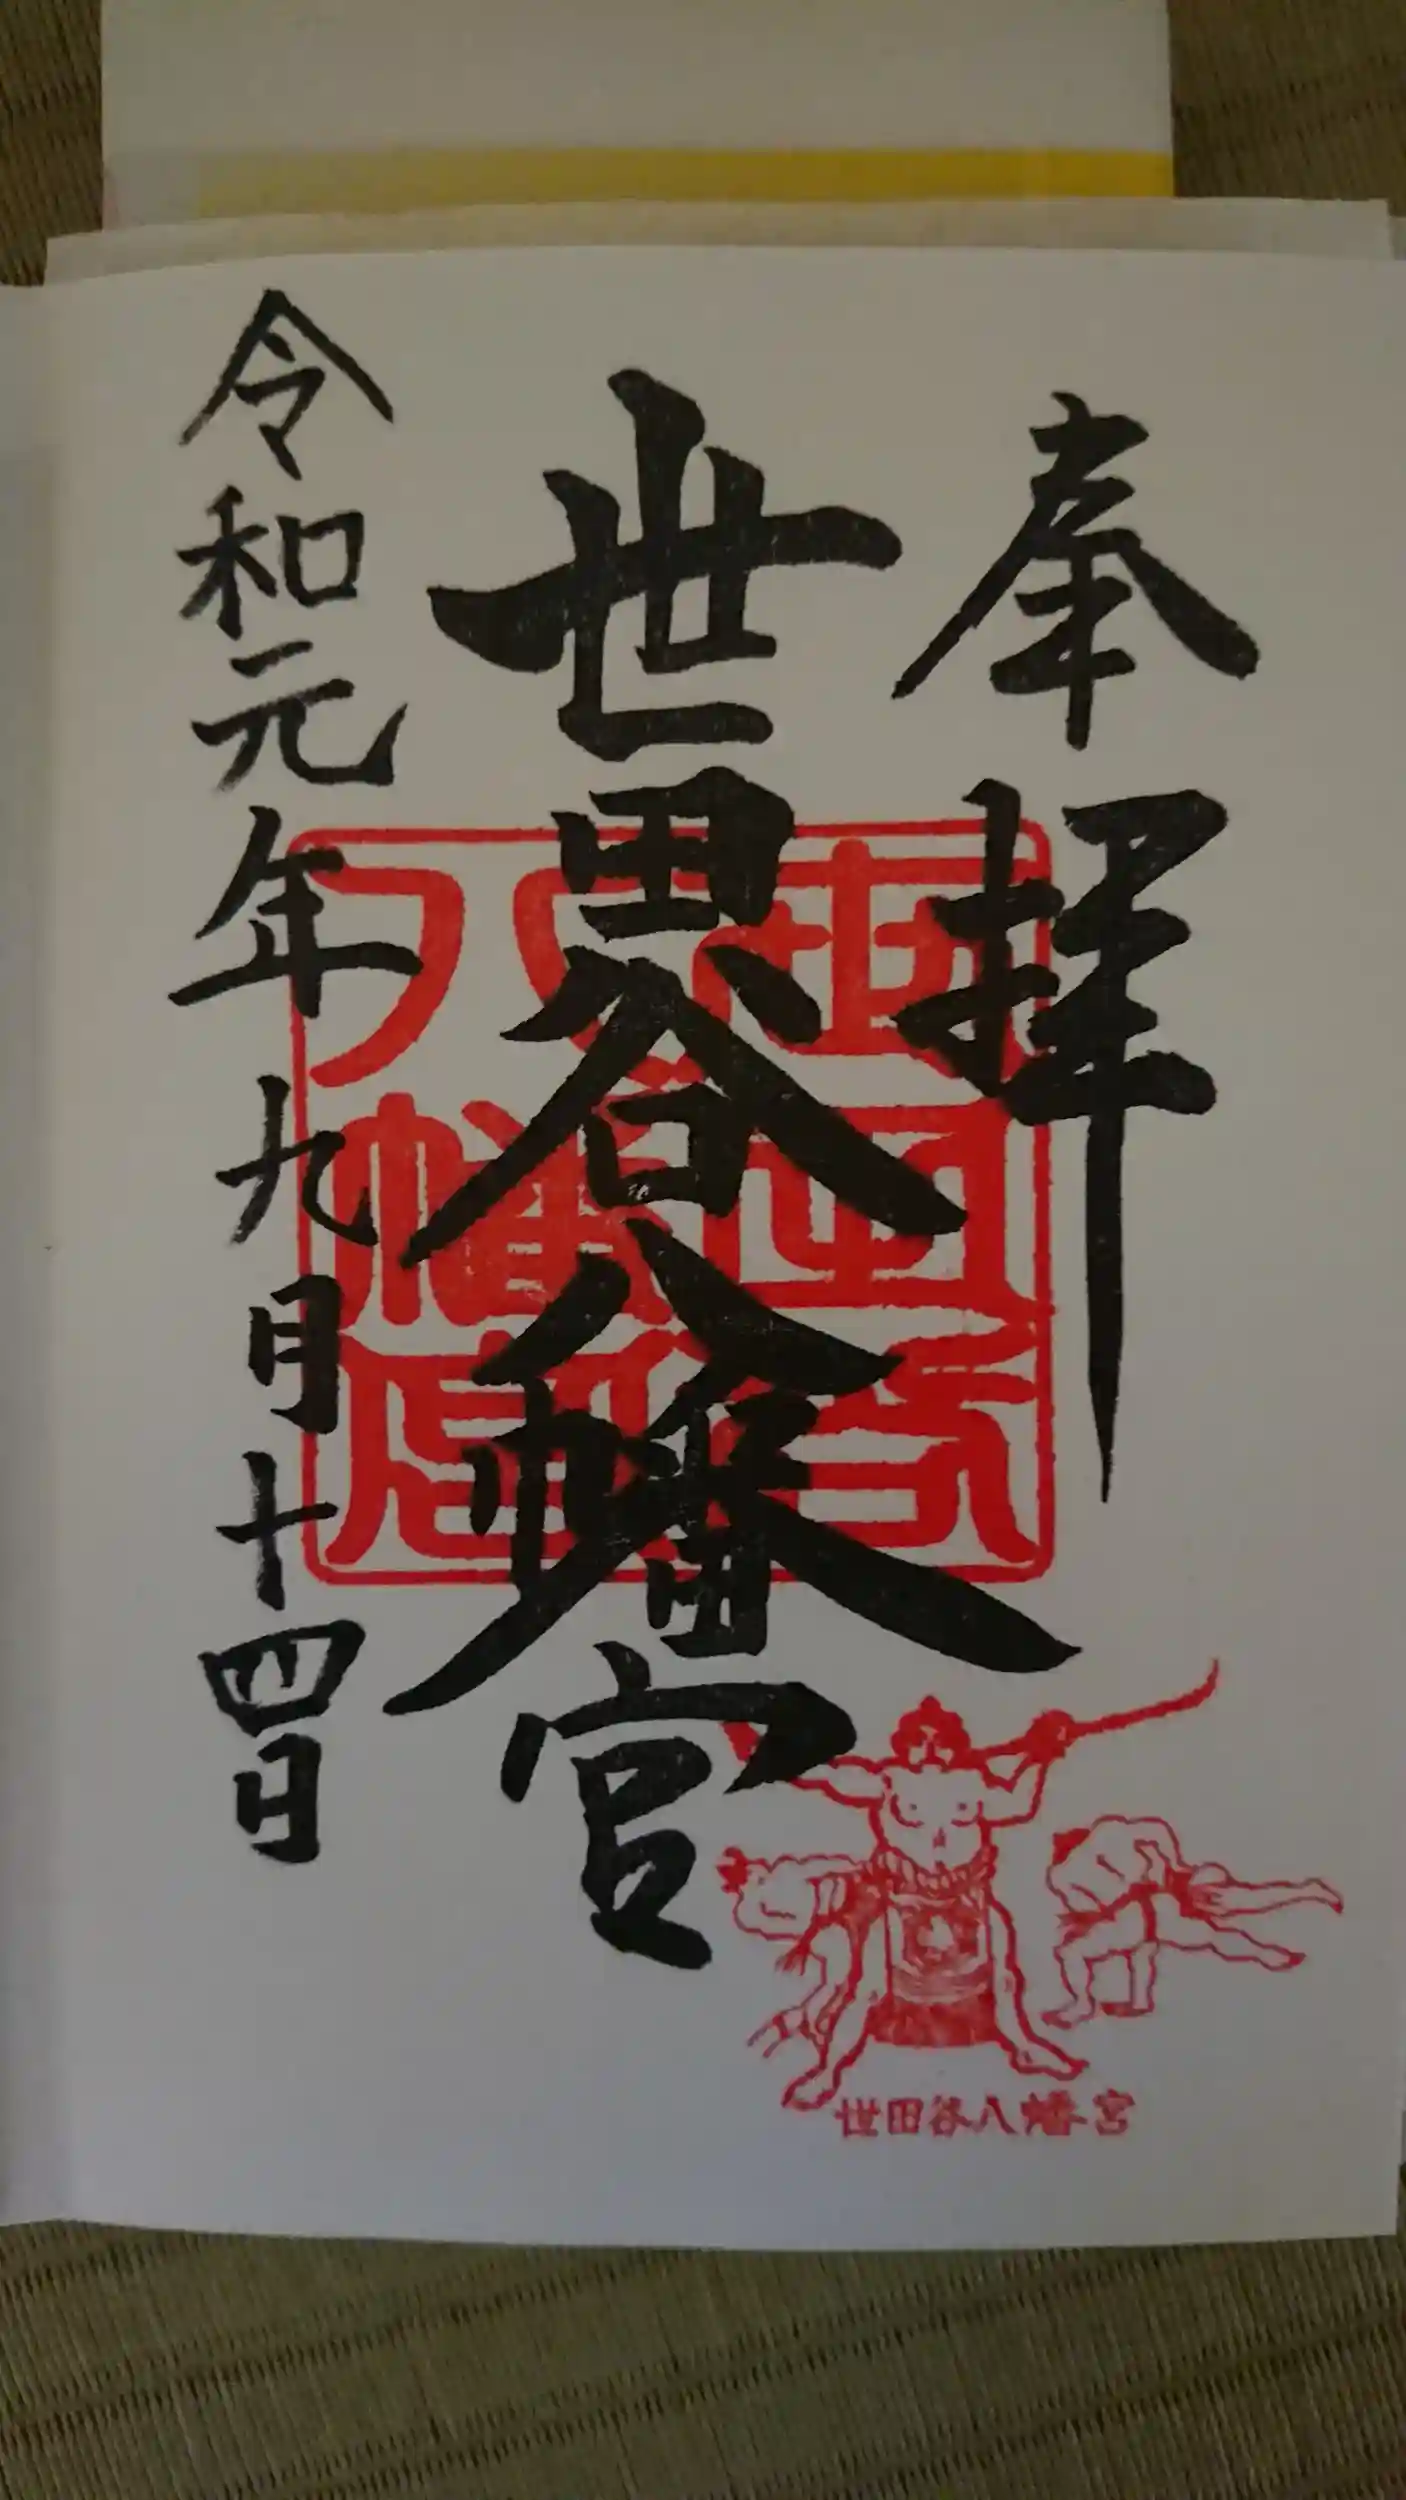 奉拝
世田谷八幡宮
令和元年九月十四日
世田谷八幡宮
世田谷八幡宮